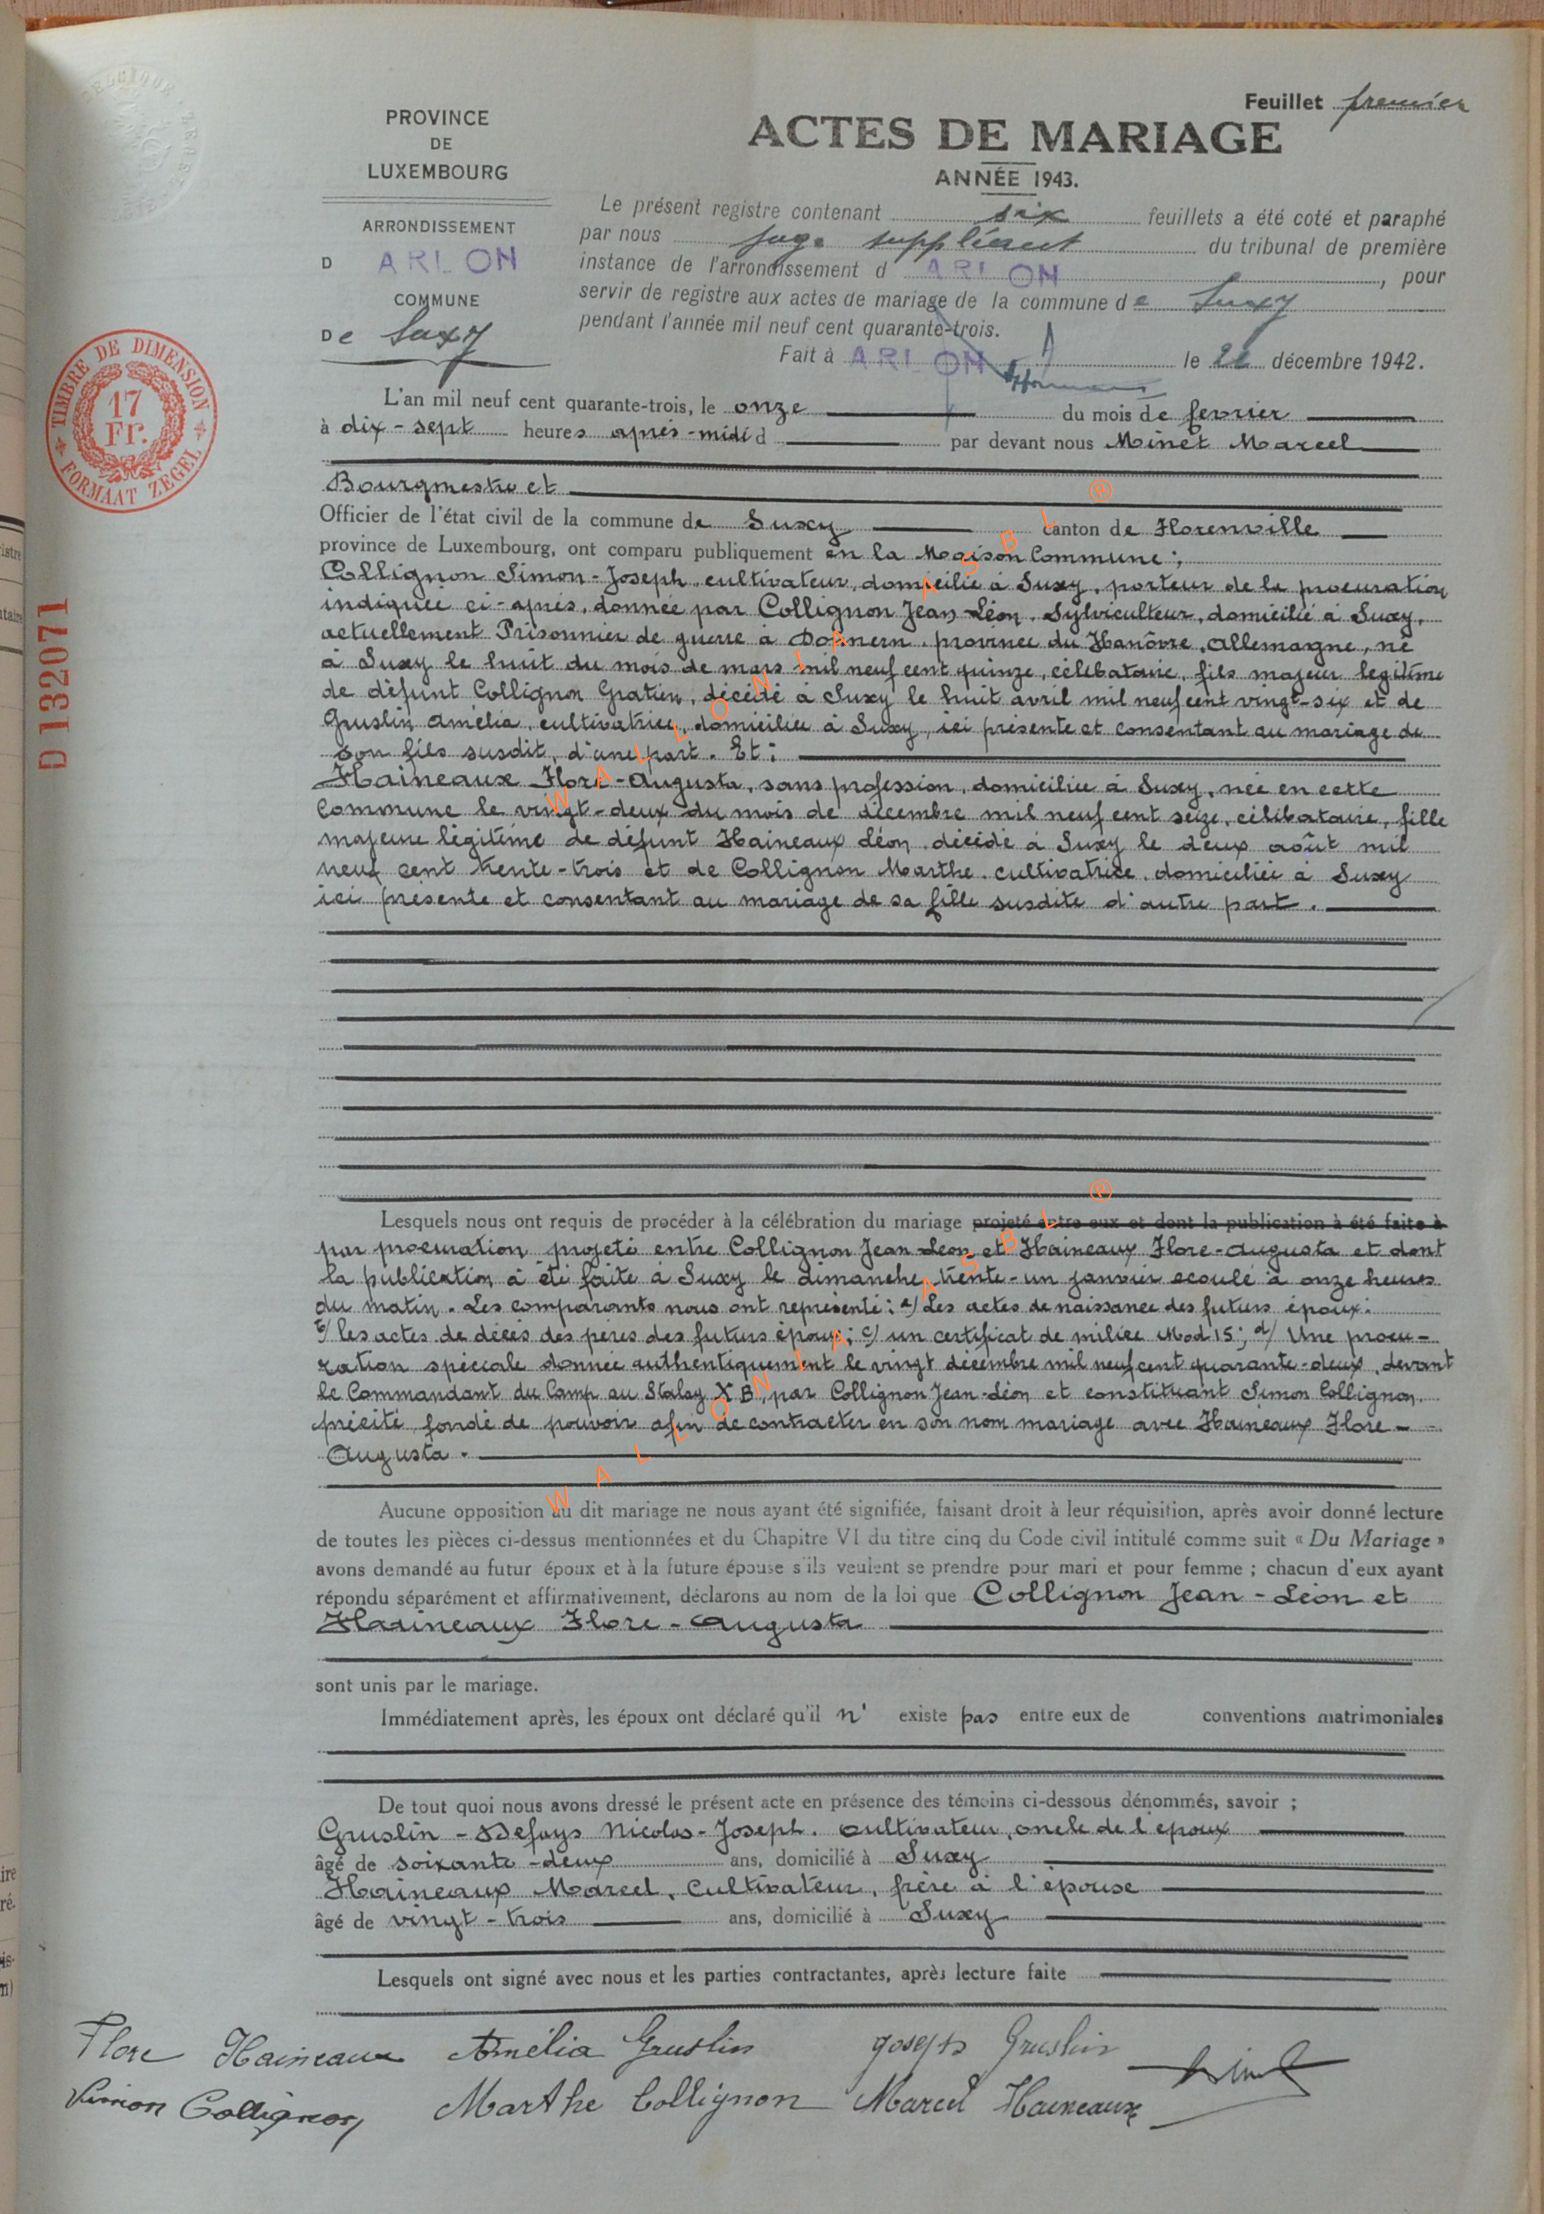 Feuillet premier
PROVINCE
DE
LUXEMBOURG
ACTES DE MARIAGE
ANNÉE 1943.
ARRONDISSEMENT
D ARLON
COMMUNE
De Suxy
Le présent registre contenant six feuillets a été coté et paraphé
par nous juge suppléant du tribunal de première
instance de l'arrondissement d ARLON, pour
servir de registre aux actes de mariage de la commune de Suxy
pendant l'année mil neuf cent quarante-trois.
Fait à ARLON le 22 décembre 1942.
TIMBRE DE DIMENSION
17
Fr.
FORMAAT ZEGEL
D132071
L'an mil neuf cent quarante-trois, le onze du mois de fevrier
à dix-sept heures après-midi d par devant nous Minet Marcel
Bourgmestre et
Officier de l'état civil de la commune de Suxy canton de Florenville
province de Luxembourg, ont comparu publiquement en la Maison Commune;
Collignon Simon-Joseph, cultivateur, domicilié à Suxy, porteur de la procuration
indiquée ci-après, donnée par Collignon Jean-Léon, Sylviculteur, domicilié à Suxy,
actuellement Prisonnier de guerre à province du Hanôvre, Allemagne, né
à Suxy le huit du mois de mars mil neuf cent quinze, célibataire, fils majeur légitime
de défunt Collignon Gratien, décédé à Suxy le huit avril mil neuf cent vingt-six et de
Gruslin Amélia, cultivatrice, domiciliée à Suxy, ici présente et consentant au mariage de
son fils susdit, d'une part. Et:
Haineaux Flore-Augusta, sans profession, domiciliée à Suxy, née en cette
Commune le vingt-deux du mois de décembre mil neuf cent seize, célibataire, fille
majeure légitime de défunt Haineaux Léon, décédé à Suxy le deux août mil
neuf cent trente-trois et de Collignon Marthe, cultivatrice, domiciliée à Suxy
ici présente et consentant au mariage de sa fille susdite d'autre part.
Lesquels nous ont requis de procéder à la célébration du mariage projeté entre eux et dont la publication à été faite à
par procuration projeté entre Collignon Jean-Léon et Haineaux Flore-Augusta et dont
la publication à été faite à Suxy le dimanche trente-un janvier écoulé à onze heures
du matin. Les comparants nous ont représenté: a/ Les actes de naissance des futurs époux;
b/ les actes de décès des pères des futurs époux; c/ un certificat de milice Mod 15; d/ Une procu-
ration spéciale donnée authentiquement le vingt décembre mil neuf cent quarante-deux, devant
le Commandant du Camp au Stalag X B, par Collignon Jean-Léon et constituant Simon Collignon
précité fondé de pouvoir afin de contracter en son nom mariage avec Haineaux Flore-
Augusta.
Aucune opposition au dit mariage ne nous ayant été signifiée, faisant droit à leur réquisition, après avoir donné lecture
de toutes les pièces ci-dessus mentionnées et du Chapitre VI du titre cinq du Code civil intitulé comme suit « Du Mariage »
avons demandé au futur époux et à la future épouse s'ils veulent se prendre pour mari et pour femme ; chacun d'eux ayant
répondu séparément et affirmativement, déclarons au nom de la loi que Collignon Jean-Léon et
Haineaux Flore-Augusta
sont unis par le mariage.
Immédiatement après, les époux ont déclaré qu'il n' existe pas entre eux de conventions matrimoniales
De tout quoi nous avons dressé le présent acte en présence des témoins ci-dessous dénommés, savoir ;
Gruslin-Defays Nicolas-Joseph. cultivateur, oncle de l'époux
âgé de soixante-deux ans, domicilié à Suxy
Haineaux Marcel, Cultivateur, frère à l'épouse
âgé de vingt-trois ans, domicilié à Suxy
Lesquels ont signé avec nous et les parties contractantes, après lecture faite
Flore Haineaux Amélia Gruslin Joseph Gruslin
Simon Collignon Marthe Collignon Marcel Haineaux
WALLONIA ASBL ®
WALLONIA ASBL ®